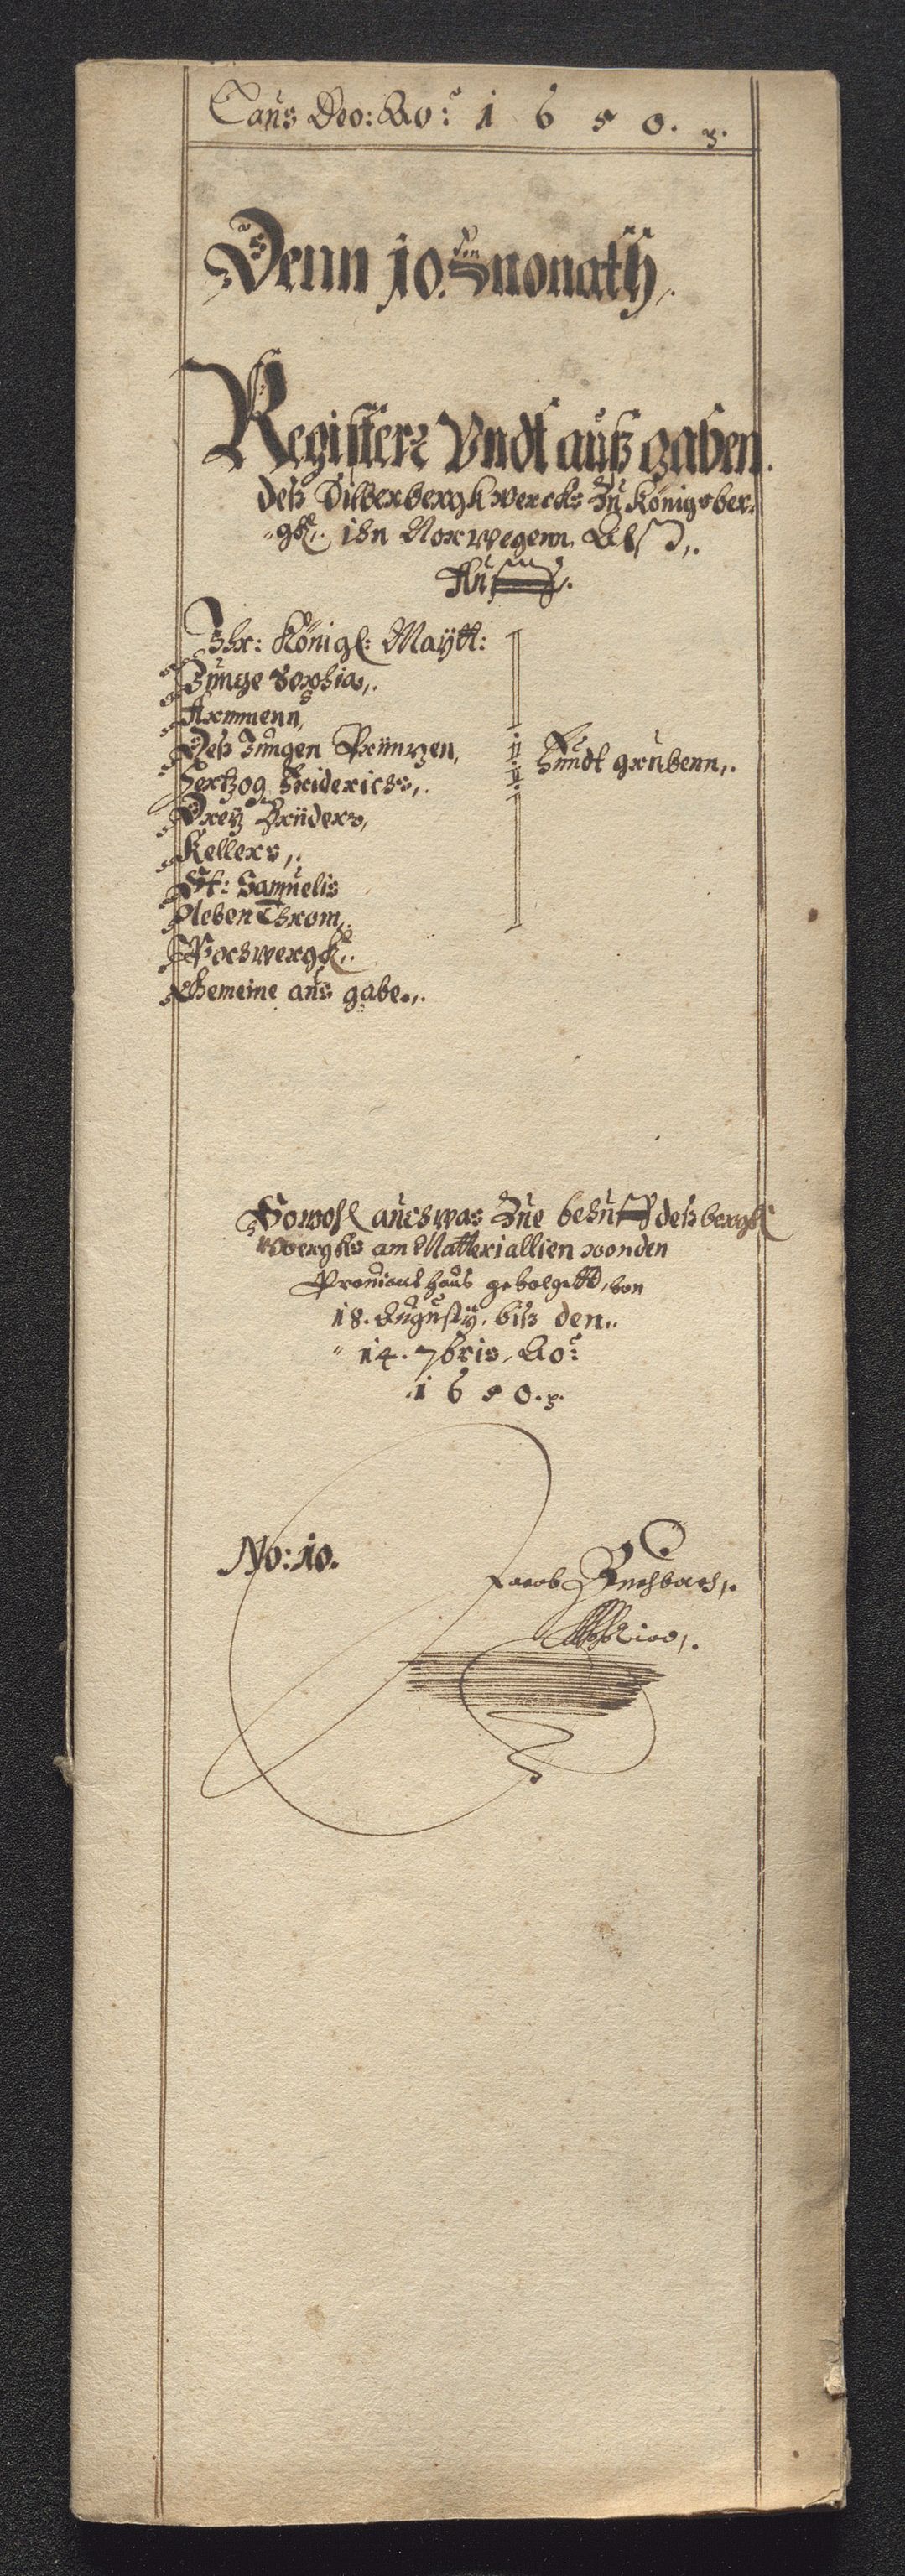 Laus Deo: Ao: 1650.
Denn 10. Monath,.
Register Undt auß gaben.
deß Silberbergkwercks Zu Königsber-
"gk,. ihn Norwegenn Alß,.
Auf
Ihr: Königl: Maytt:
Junge Sophia,.
Armmenn,
Deß Jungen Printzen,
Hertzog Friderichs,.
Fundt grubenn,.
Dreÿ Brüders,
Kellers,.
St: Samuelis
Neben Throm,.
Pochwergk,.
Gemeine aus gabe,.
Sowohl auch was Zue behuff deß bergk
wergks am Matteriallien von den
Proviant Haus gevolgett, von
18. Augusty. biß den,.
" 14. 7bris, Ao:
1650.
No: 10.
Jacob